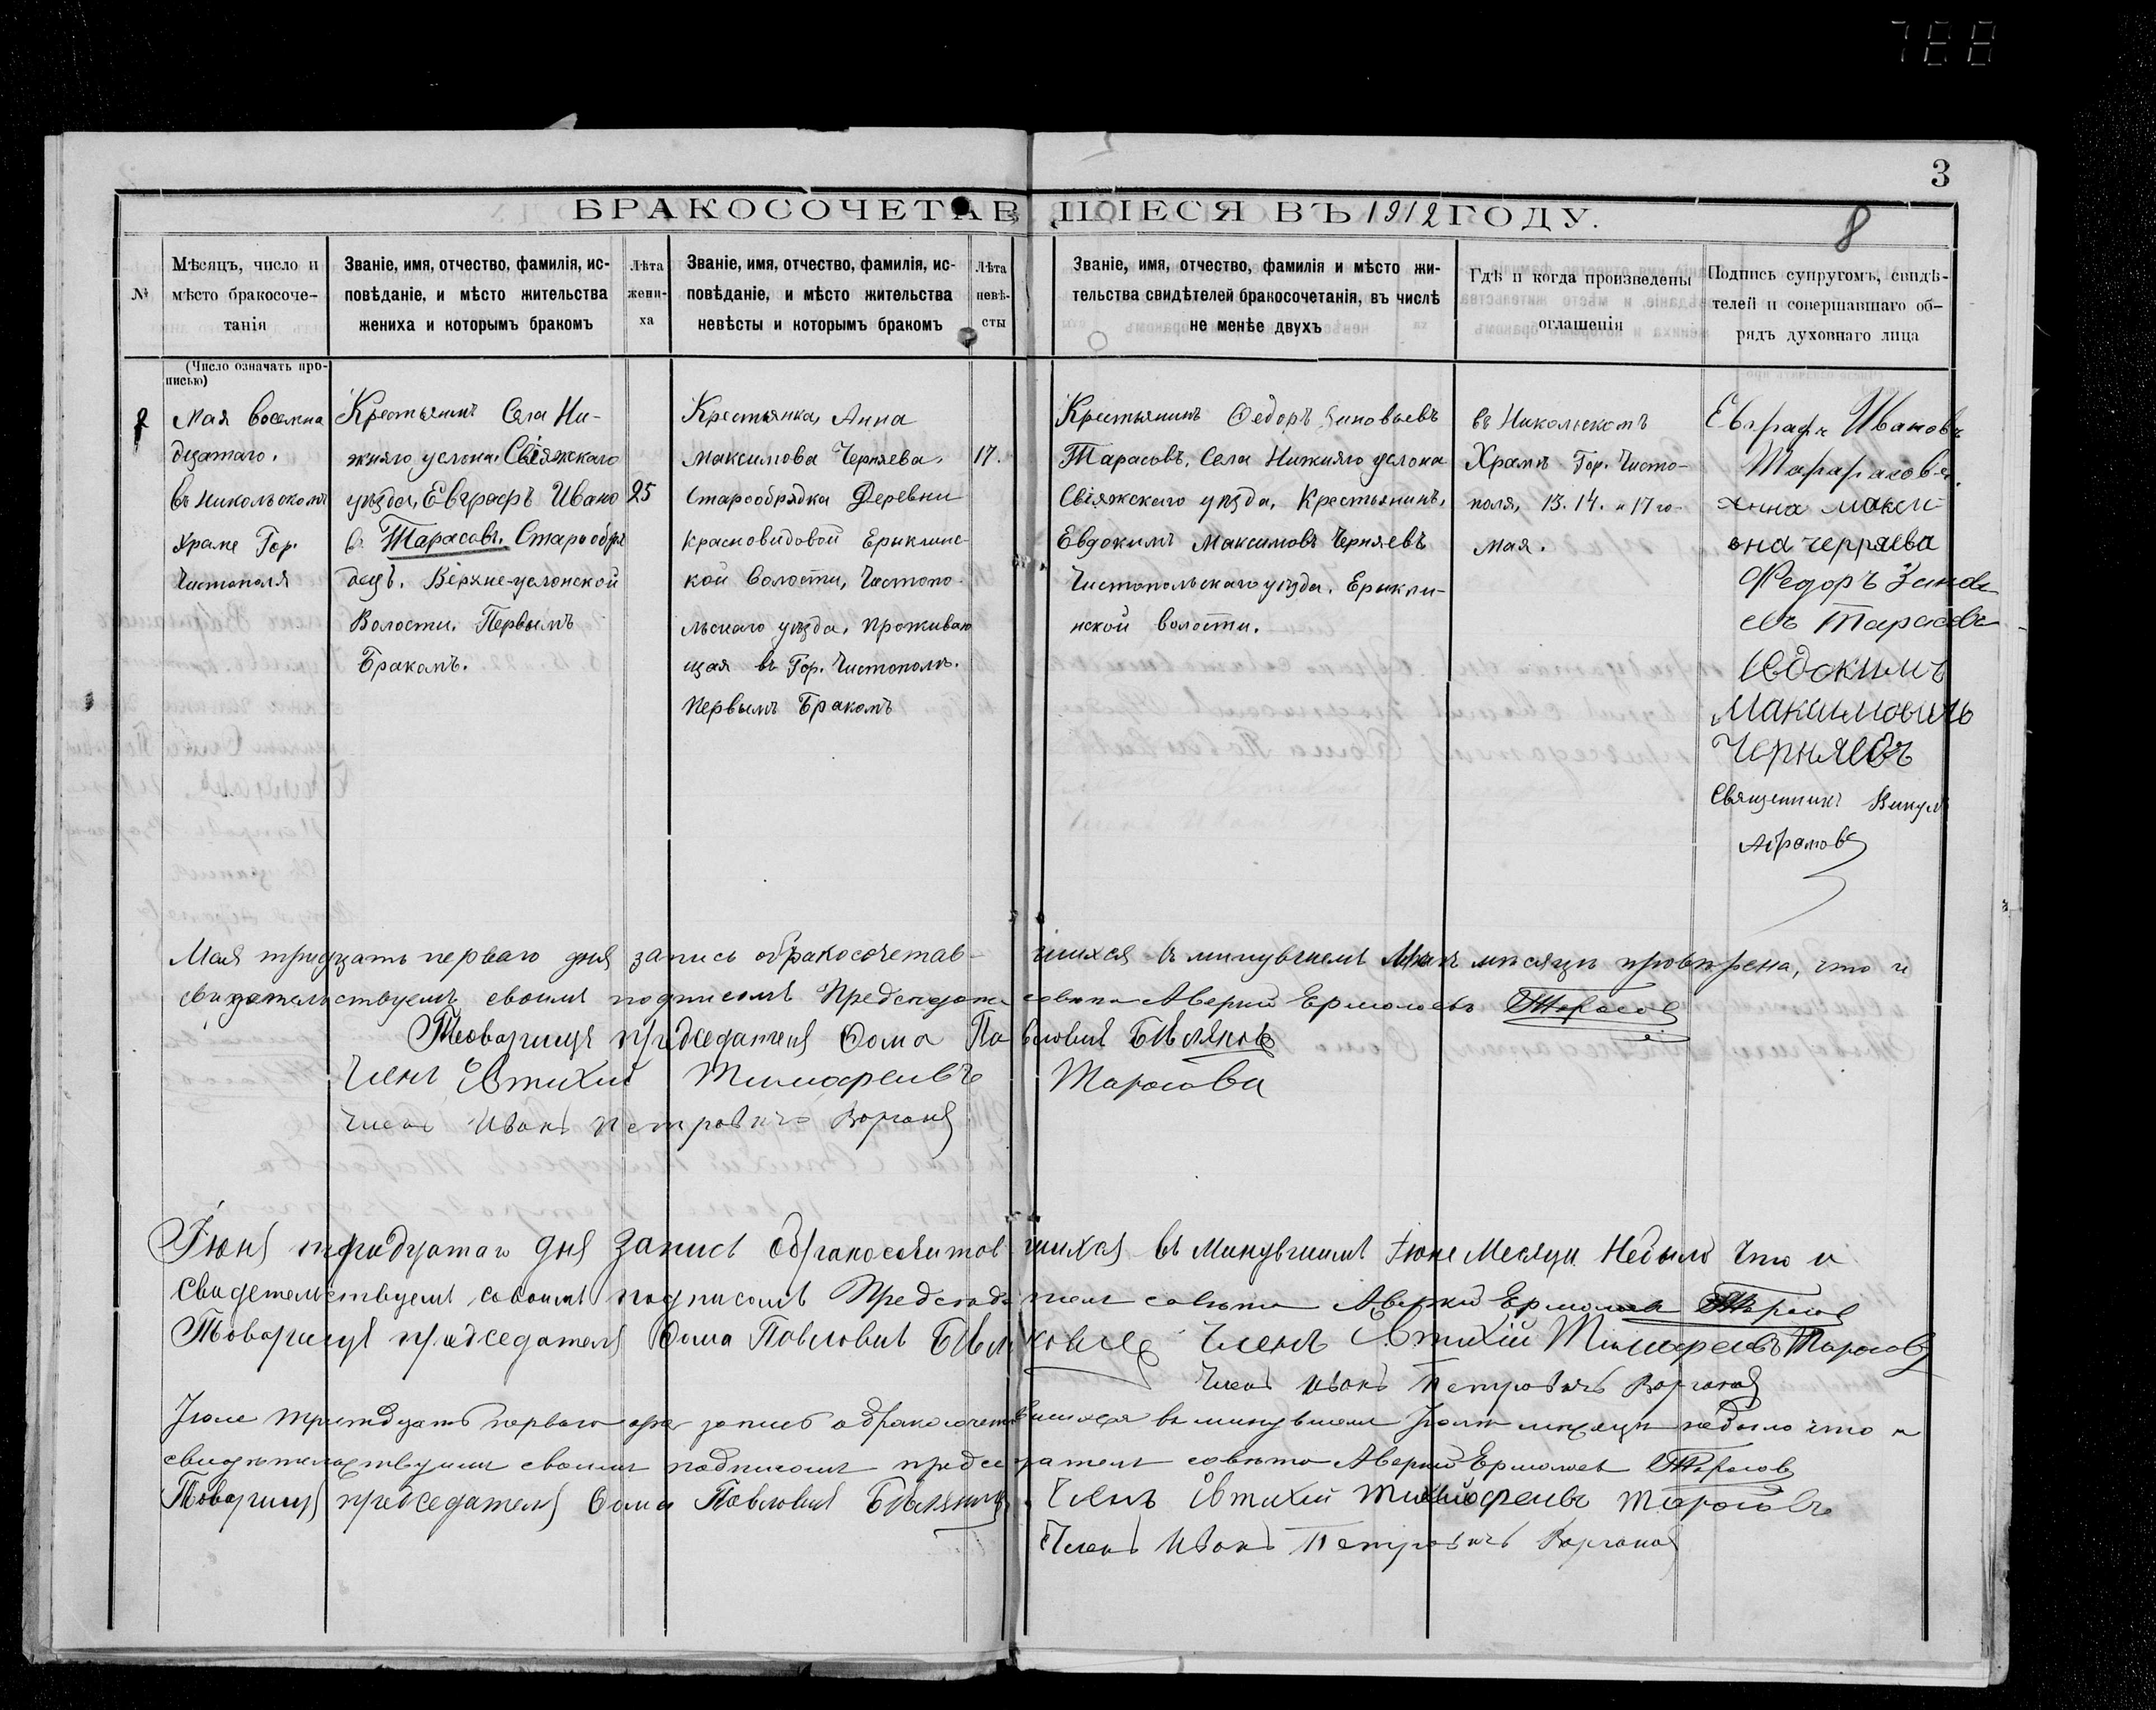 788
3
БРАКОСОЧЕТАВШІЕСЯ ВЪ 1912 ГОДУ.
8
№
Мѣсяцъ, число и
мѣсто бракосоче-
танія
Званіе, имя, отчество, фамилія, ис-
повѣданіе, и мѣсто жительства
жениха и которымъ бракомъ
Лѣта
жени-
ха
Званіе, имя, отчество, фамилія, ис-
повѣданіе, и мѣсто жительства
невѣсты и которымъ бракомъ
Лѣта
невѣ-
сты
Званіе, имя, отчество, фамилія и мѣсто жи-
тельства свидѣтелей бракосочетанія, въ числѣ
не менѣе двухъ
Гдѣ и когда произведены
оглашенія
Подпись супругомъ, свидѣ-
телей и совершавшаго об-
рядъ духовнаго лица
(Число означать про-
писью)
Мая восемна
дцатаго.
въ Никольскомъ
Храме Гор.
Чистополя
Крестьянинъ Села Ни-
жняго услона. Свіяжскаго
уѣзда, Евграфъ Ивано
въ Тарасовъ. Старообря
децъ. Верхне-услонской
Волости. Первымъ
Бракомъ.
25
Крестьянка, Анна
Максимова Черняева.
Старообрядка Деревни
Красновидовой Ерыклинс-
кой Волости, Чистопо-
льскаго уѣзда, Проживаю
щая въ Гор. Чистополѣ.
Первымъ Бракомъ
17.
Крестьянинъ Федоръ Зиновьевъ
Тарасовъ, Села Нижняго услона
Свіяжскаго уѣзда, Крестьянинъ,
Евдокимъ Максимовъ Черняевъ
Чистопольскаго уѣзда. Ерыкли-
нской волости.
въ Никольскомъ
Храмѣ Гор. Чисто-
поля, 13. 14. и 17 го
мая.
Евграфъ Ивановъ
Анна макси
она
Федоръ Зинов
евъ Тарасовъ
Евдокимъ
Максимовичь
Черняевъ
Священникъ Викулъ
Абрамовъ
Мая тридцать перваго дня запись обракосочетав-шихся въ минувшемъ Маѣ мѣсяцѣ провѣрена, что и
свидетельствуемъ своимъ подписомъ Председатель совѣта Аверкій Ермолаевъ Тарасовъ
Товарищъ председателя Фома Павловичъ Бѣляковъ
Членъ Евтихий Тимофеивъ Тарасовъ
Членъ Иванъ Петровичъ
Іюня тридцатаго дня запись обракосочетавшихся въ минувшимъ Іюне Месяци Небыло что и
свидетельствуемъ своимъ подписомъ Председатель совѣта Аверкий Ермолаевъ Тарасовъ
Товарищъ председателя Фома Павловичъ Бѣляковъ Членъ Евтихій Тимофеевъ Тарасовъ
Членъ Иванъ Петровичъ
Июле тритдцать перваго дня запись обракосочетавшихся въ минувшемъ Июлѣ мѣсяцѣ небыло что и
свидѣтельствуимъ своимъ подписомъ председатель совѣта Аверкий Ермолаевъ Тарасовъ
Товарищъ председателя Фома Павловичъ Бѣляковъ Членъ Евтихий Тимофеивъ Тарасовъ
Членъ Иванъ Петровичъ